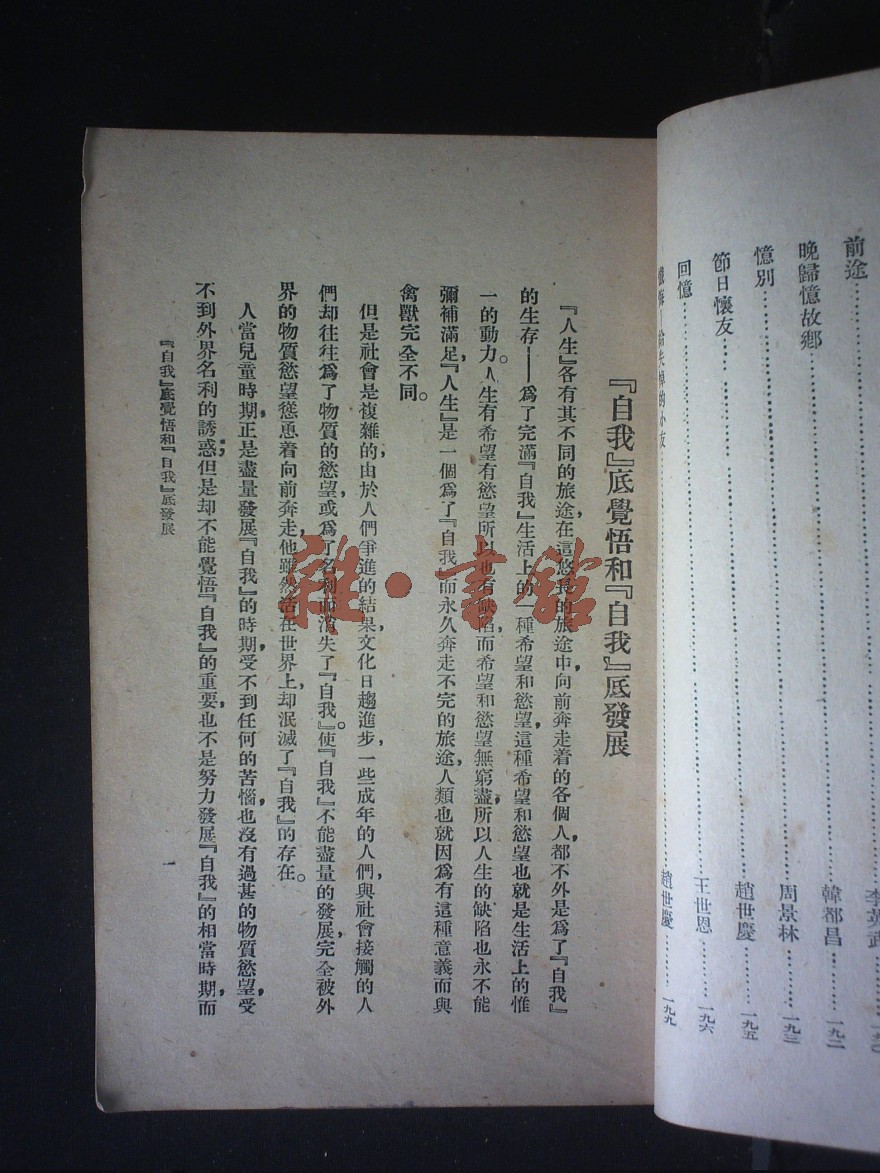 前途……李英武……
晚歸憶故鄉……韓都昌……一九二
憶別……周景林……一九三
節日懷友……趙世慶……一九五
回憶……王世恩……一九六
給失掉的小友……趙世慶……一九九
『自我』底覺悟和『自我』底發展
『人生』各有其不同的旅途，在這悠長的旅途中，向前奔走着的各個人，都不外是爲了『自我』
的生存——爲了完滿『自我』生活上的一種希望和慾望，這種希望和慾望也就是生活上的惟
一的動力。人生有希望有慾望所以也有缺陷，而希望和慾望無窮盡，所以人生的缺陷也永不能
彌補滿足，『人生』是一個爲了『自我』而永久奔走不完的旅途，人類也就因爲有這種意義而與
禽獸完全不同。
但是社會是複雜的，由於人們爭進的結果，文化日趨進步，一些成年的人們，與社會接觸的人
們却往往爲了物質的慾望，或爲了名利而消失了『自我』。使『自我』不能盡量的發展，完全被外
界的物質慾望慫恿着向前奔走，他雖然活在世界上，却泯滅了『自我』的存在。
人當兒童時期，正是盡量發展『自我』的時期，受不到任何的苦惱，也沒有過甚的物質慾望，受
不到外界名利的誘惑；但是却不能覺悟『自我』的重要，也不是努力發展『自我』的相當時期，而
『自我』底覺悟和『自我』底發展
一
雜·書館